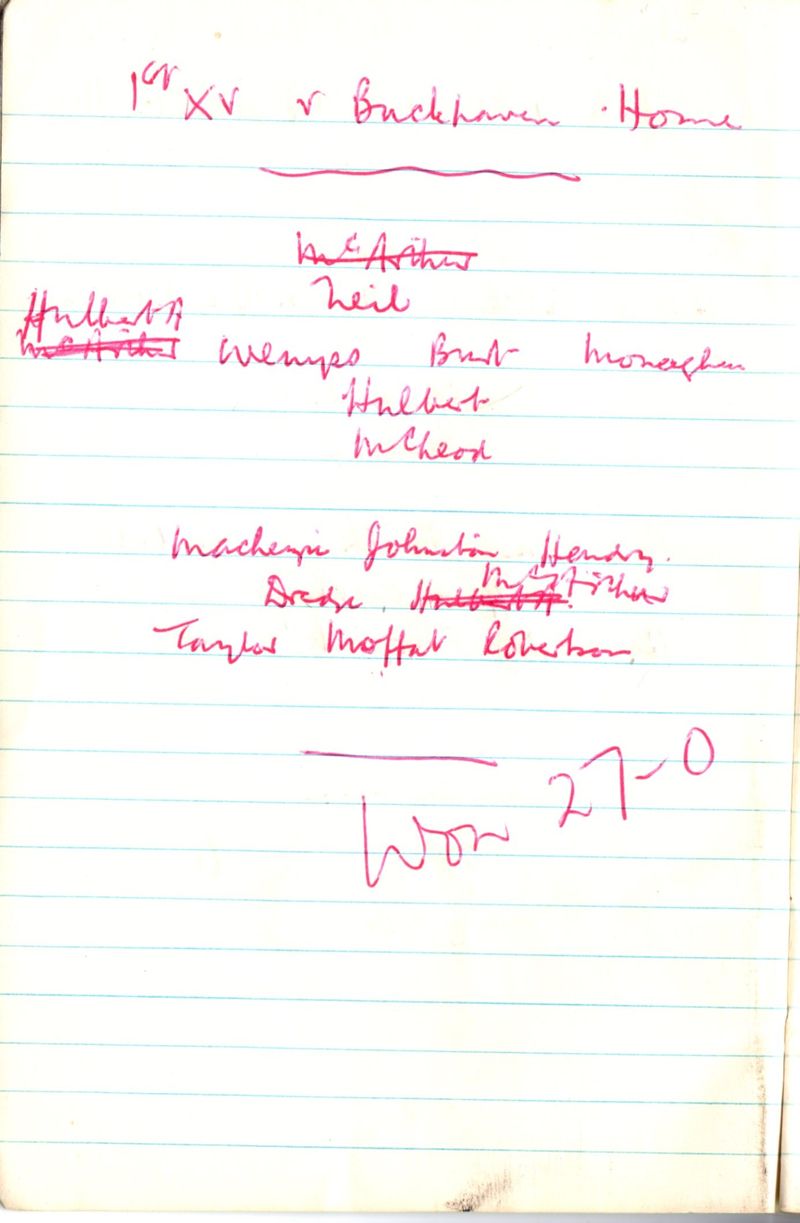 1st XV v Buckhaven . Home
McArthur
Neil
Hulbert A
McArthur Wemyss Brust Monaghan
Hulbert
McLeod
Mackenzie Johnston Hendry.
McG Fisher
Dredge . Hulbert A.
Taylor Moffat Robertson
Won 27-0